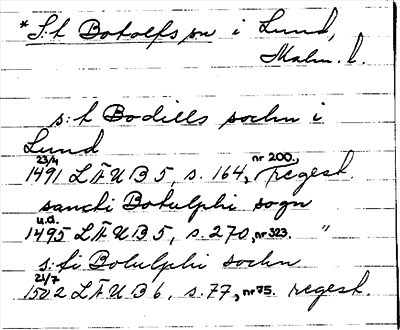 * S:t Botolfs sn i Lund,
Malm. l.
s:t Bodills sochn i
Lund
23/4 nr 200.,
1491 LÄUB 5, s. 164, regest.
sancti Botulphi sogn
u.d.
1495 LÄUB 5, s. 270, nr 323. "
s:ti Botulphi sochn
21/7
1502 LÄUB 6, s. 77, nr 75. regest.